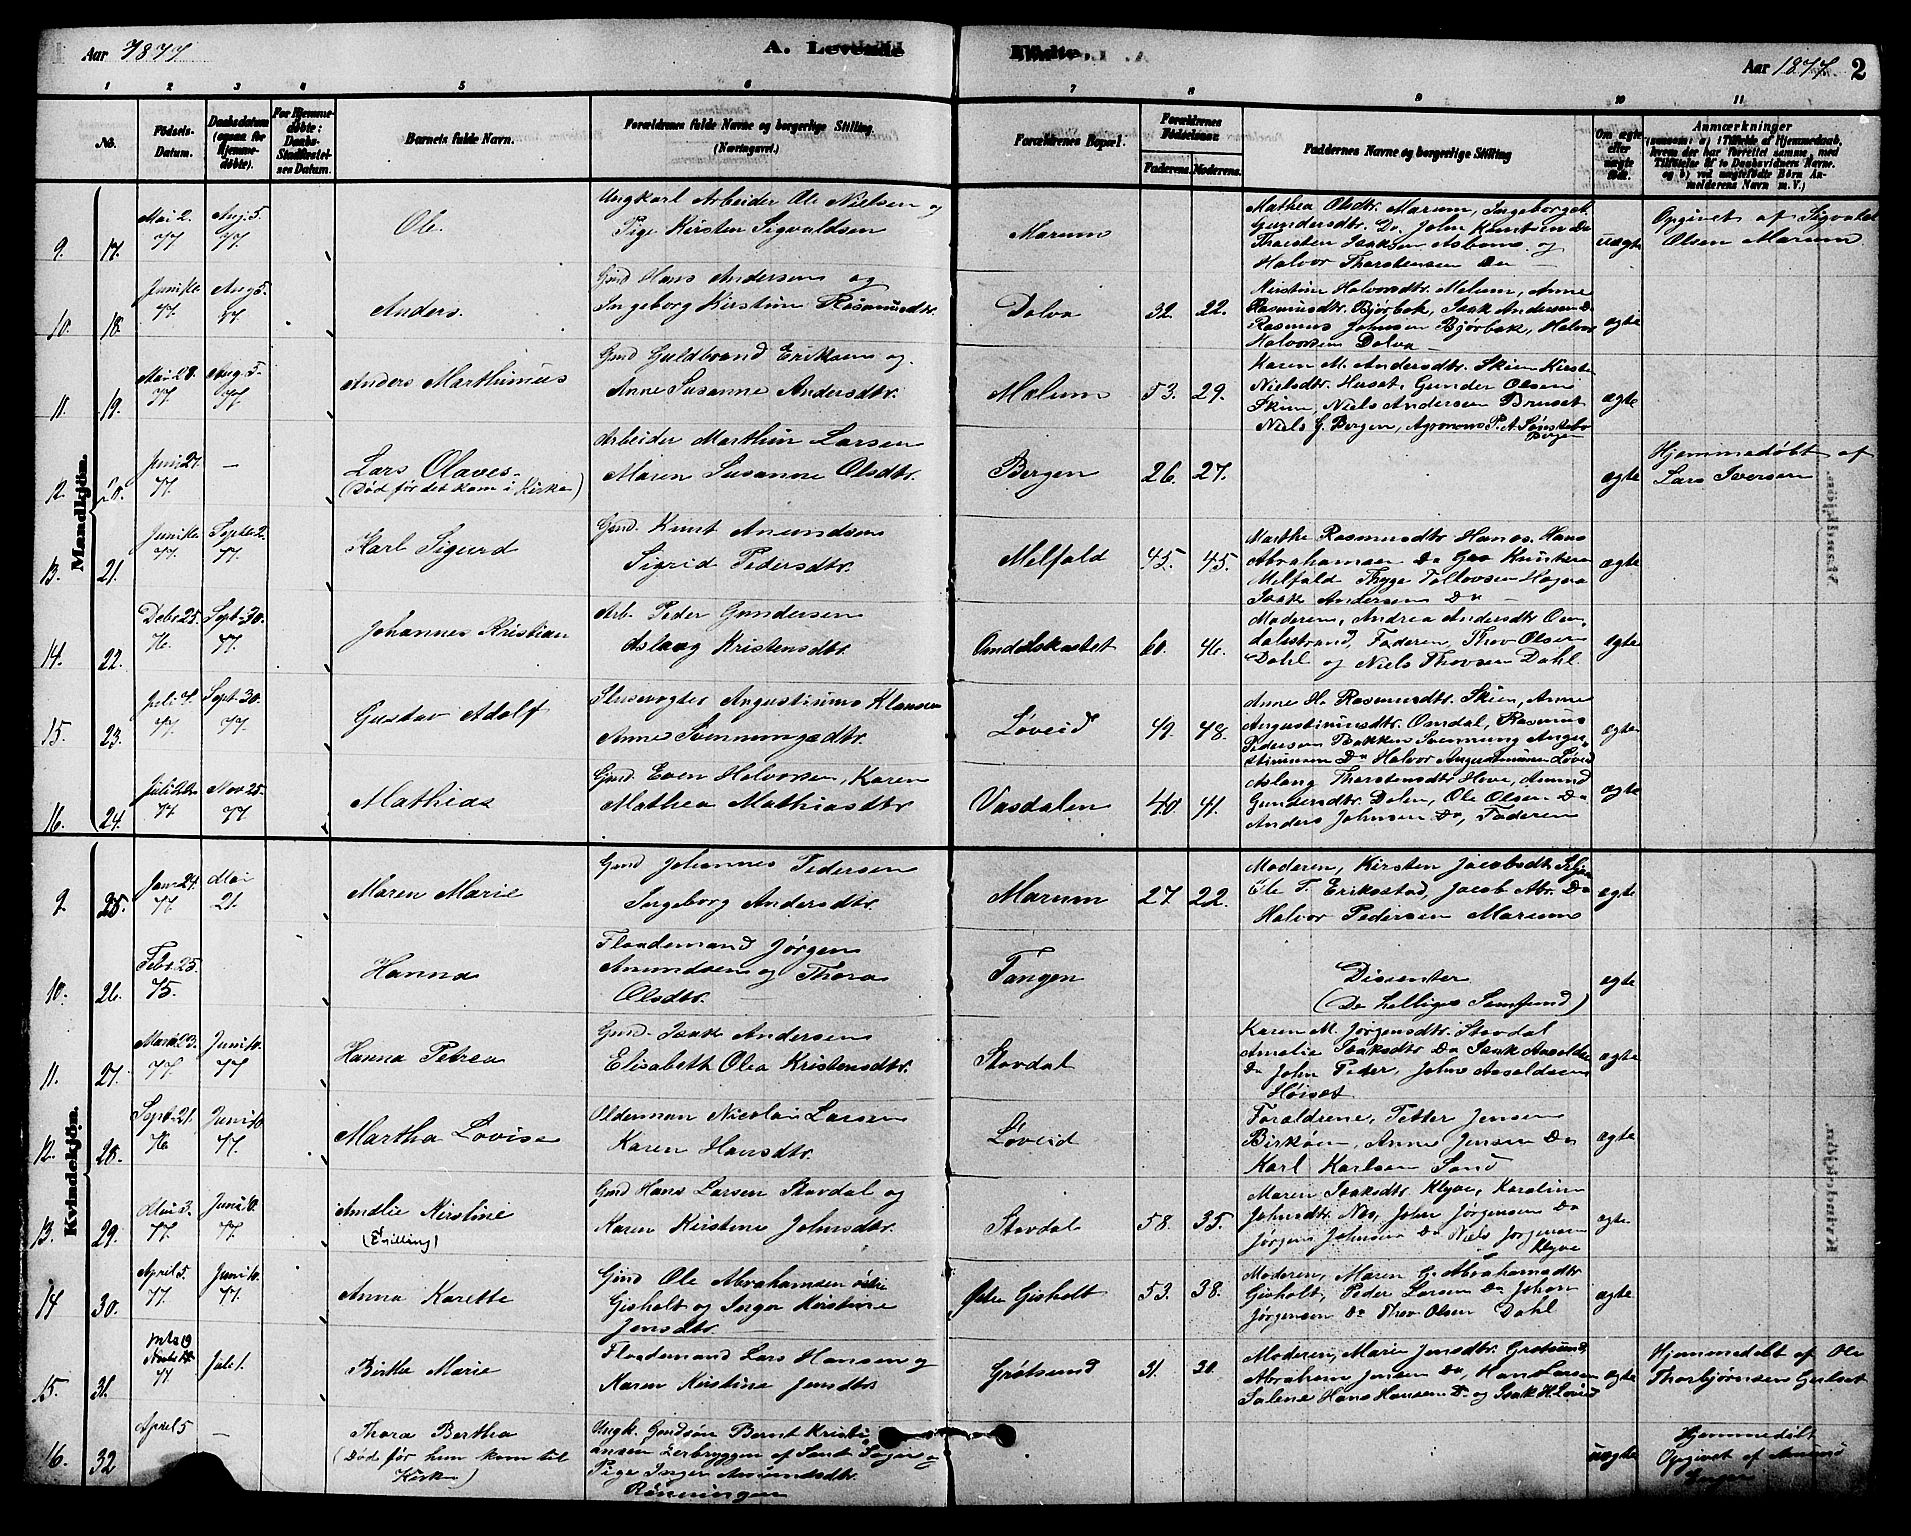 Aar 1877.
A. Levende
Fødte.
Aar 1877.
2
1 2 3 4 5 6 7 8 9 10 11
No.
Fødsels-Datum.
Daabsdatum (ogsaa for Hjemmedøbte).
For Hjemmedøbte: Daabs-Stadfæstelsens Datum.
Barnets fulde Navn.
Forældrenes fulde Navne og borgerlige Stilling. (Næringsvei.)
Forældrenes Bopæl.
Forældrenes Fødselsaar
Faderens. Moderens.
Faddernes Navne og borgerlige Stilling
Om ægte eller uægte født.
Anmærkninger
Mandkjøn.
9. 17. Mai 2. 77 Aug. 5. 77.
Ole
Ungkarl Arbeider Ole Nielsen og
Pige Kirsten Sigvaldsen
Marum
Mathea Olsdtr. Marum, Ingeborg A.
Gundersdtr. Do, John Knutsen Do
Thorsten Isaksen Aasboms og
Halvor Thorstensen Do
uægte
Opgivet af Sigvald
Olsen Marum
10. 18. Aug 5. 77
Anders.
Gmd Hans Andersens og
Ingeborg Kirstine Rasmusdtr.
Dolva
32. 22.
Kirstine Halvorsdtr. Melum, Anne
Rasmusdtr. Bjørbek, Isak Andersen Do
Rasmus Johnsen Bjørbek, Halvor
Halvorsen Dolva
ægte
11. 19. Mai 28. 77 Aug. 5. 77.
Anders Marthinius
Gmd Guldbrand Eriksen og
Anne Susanne Andersdtr.
Melum
53. 29.
Karen M. Andersdtr. Skien Kirste
Nielsdtr. Huset, Gunder Olsen
Skien, Niels Andersen Bruset
Niels G. Bergen, Agronom P. A.
Bergen
ægte
12. 20. Juni 27. 77. —
Lars Olaves.
(Død før det kom i Kirke)
Arbeider Marthin Larsen
Maren Susanne Olsdtr.
Bergen
26. 27.
ægte
Hjemmedøbt af
Lars Iversen
13. 21. 77. Septbr 2. 77.
Karl Sigurd
Gmd. Knut Amundsen
Sigrid Pedersdtr.
Melfald
45. 45.
Marthe Rasmusdtr. Hanes. Hans
Abrahamsen Do Knutsen
Melfald Thyge Tollovsen
Isak Andersen Do
ægte
14. 22. Debr. 25. 76. Sept. 30. 77.
Johannes Kristian
Arb. Peder Gundersen
Aslaug Kristensdtr.
Omdalskastet
60. 46.
Moderen, Andrea Andersdtr Om-
dalsstrand, Faderen, Thov Olsen
Dahl og Niels Thovsen Dahl
ægte
15. 23. Juli 7. 77. Sept. 30. 77.
Gustav Adolf
Slusevogter Augustinus Klausen
Anne Svenningsdtr.
Løveid
49. 48.
Anne H. Rasmusdtr. Skien, Anne
Augustinusdtr. Omdal, Rasmus
Pedersen Bakken Svennung Augu-
stinusen Do Halvor Augustinusen Løveid
ægte
16. 24. 77. Nov. 25. 77
Mathias
Gmd. Even Halvorsen, Karen
Mathea Mathiasdtr.
Vasdalen
40 41.
Aslaug Thorstensdtr. Hove, Amund
Gundersdtr. Dolen, Ole Olsen Do
Anders Johnsen Do, Faderen
ægte
Kvindekjøn.
9. 25. Jan. 24. 77. Mai 21.
Maren Marie
Gmd Johannes Pedersen
Ingeborg Andersdtr.
Marum
27 22.
Moderen, Kirsten Jacobsdtr.
Ole T. Erikstad, Jacob Abr. Do
Halvor Pedersen Marum
ægte
10. 26. Febr. 25. 75.
Hanna
Flaademand Jørgen
Amundsen og Thora
Olsdtr.
Tangen
Dissenter
(De helliges Samfund)
ægte
11. 27. Marts 23. 77. Juni 10. 77
Hanna Petrea
Gmd. Isak Andersen
Elisabeth Olea Kristensdtr.
Stavdal
Karen M. Jørgensdtr. Stavdal
Amalie Isaksdtr Do Isak Aaseldsen
Do John Peder, Johns Aaseldsen
Høiset
ægte
12. 28. Sept. 21. 76 Juni 10 77.
Martha Lovise
Olderman Nicolai Larsen
Karen Hansdtr.
Løveid
Forældrene, Petter Jensen
Birkøen, Anne Jensen Do
Karl Karlsen Sand
ægte
13. 29. Mai 3. 77. Juni 10. 77.
Amalie Kirstine
(Tvilling)
Gmd Hans Larsen Stavdal og
Karen Kirstine Johnsdtr.
Stavdal
58. 35.
Maren Isaksdtr. Klyve, Karoline
Johnsdtr. Nes, John Jørgensen Do
Jørgen Johnsen Do Niels Jørgensen
Klyve
ægte
14 30. April 5. 77. Juni 10. 77.
Anna Karette
Gmd Ole Abrahamsen
Gisholt og Inger Kirstine
Jensdtr.
Gisholt
53. 38.
Moderen, Maren G. Abrahamsdtr
Gisholt, Peder Larsen Do Johan
Jørgensen Do Thov Olsen Dahl
ægte
15. 31. 77 Juli 1.
Birthe Marie
Flaademand Lars Hansen og
Maren Kirstine Jensdtr.
Grøtsund
31. 30.
Moderen, Marie Jensdtr. Grøtsund
Abraham Jensen Do, Hans Larsen
Salene Hans Hansen Do og Isak H. Løveid
ægte
Hjemmedøbt af Ole
Thorbjørnsen
16. 32 April 5 —
Thora Bertha
(Død før hun kom til
Kirke)
Ungk. Gmdsøn Bernt Kristi-
ansen
Pige Inger Amundsdtr.
Rønningen
uægte
Hjemmedøbt
Opgivet af Amund